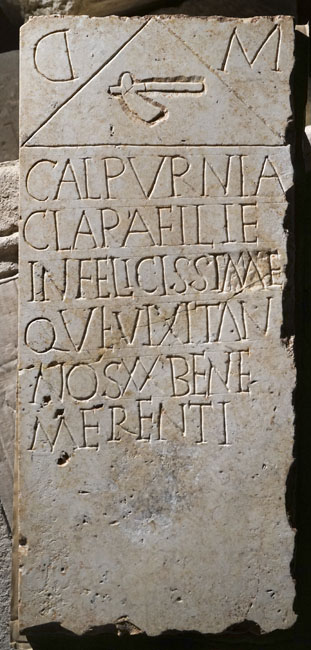 D M
CALPVRNIA
CLARAFILIE
INFELICISSIMAE
QVEVIXITAN
NOSXVBENE
MERENTI